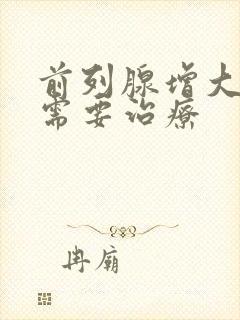 前列腺增大
需要治疗
冉庙